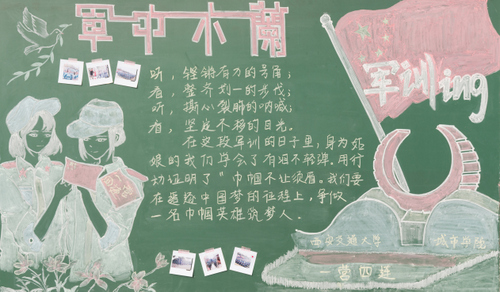 军中木兰
听，铿锵有力的号角；
看，整齐划一的步伐；
听，撕心裂肺的呐喊；
看，坚定不移的目光。
在这段军训的日子里，身为班
级的我们学会了有泪不轻弹。用行
动证明了“巾帼不让须眉。我们要
在追逐中国梦的征程上，争做
一名巾帼英雄筑梦人。
军训ing
西安交通大学
城市学院
一营四连